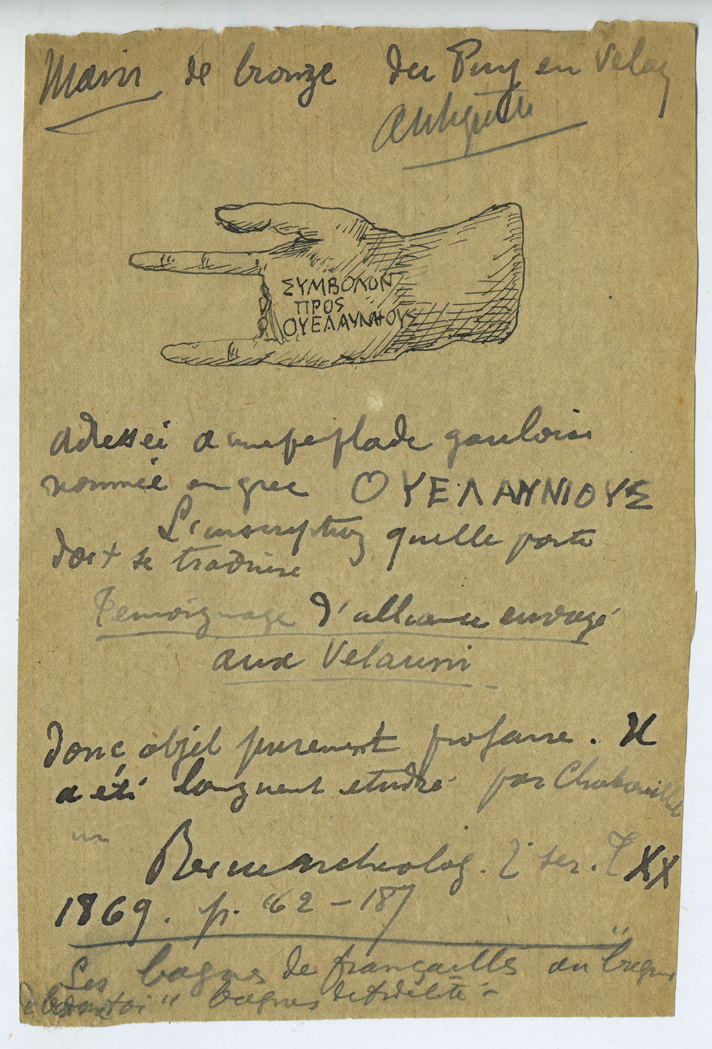 Main de bronze du Puy en Velay
Antiquité
ΣΥΜΒΟΛΟΝ
ΠΡΟΣ
ΟΥΕΛΑΥΝΙΟΥΣ
adressée a une peplade gauloise
nommée en grec ΟΥΕΛΑΥΝΙΟΥΣ
L'inscription quelle porte
doit se traduire
Temoignage d'alliance envoyé
aux Velauni
donc objet purement profane. Il
a été longuent etudié par Chabouillet
in Revue archeolog. 2 ser. T XX
1869. p. 162-187
Les bagues de fiançailles
bagues de fidélité